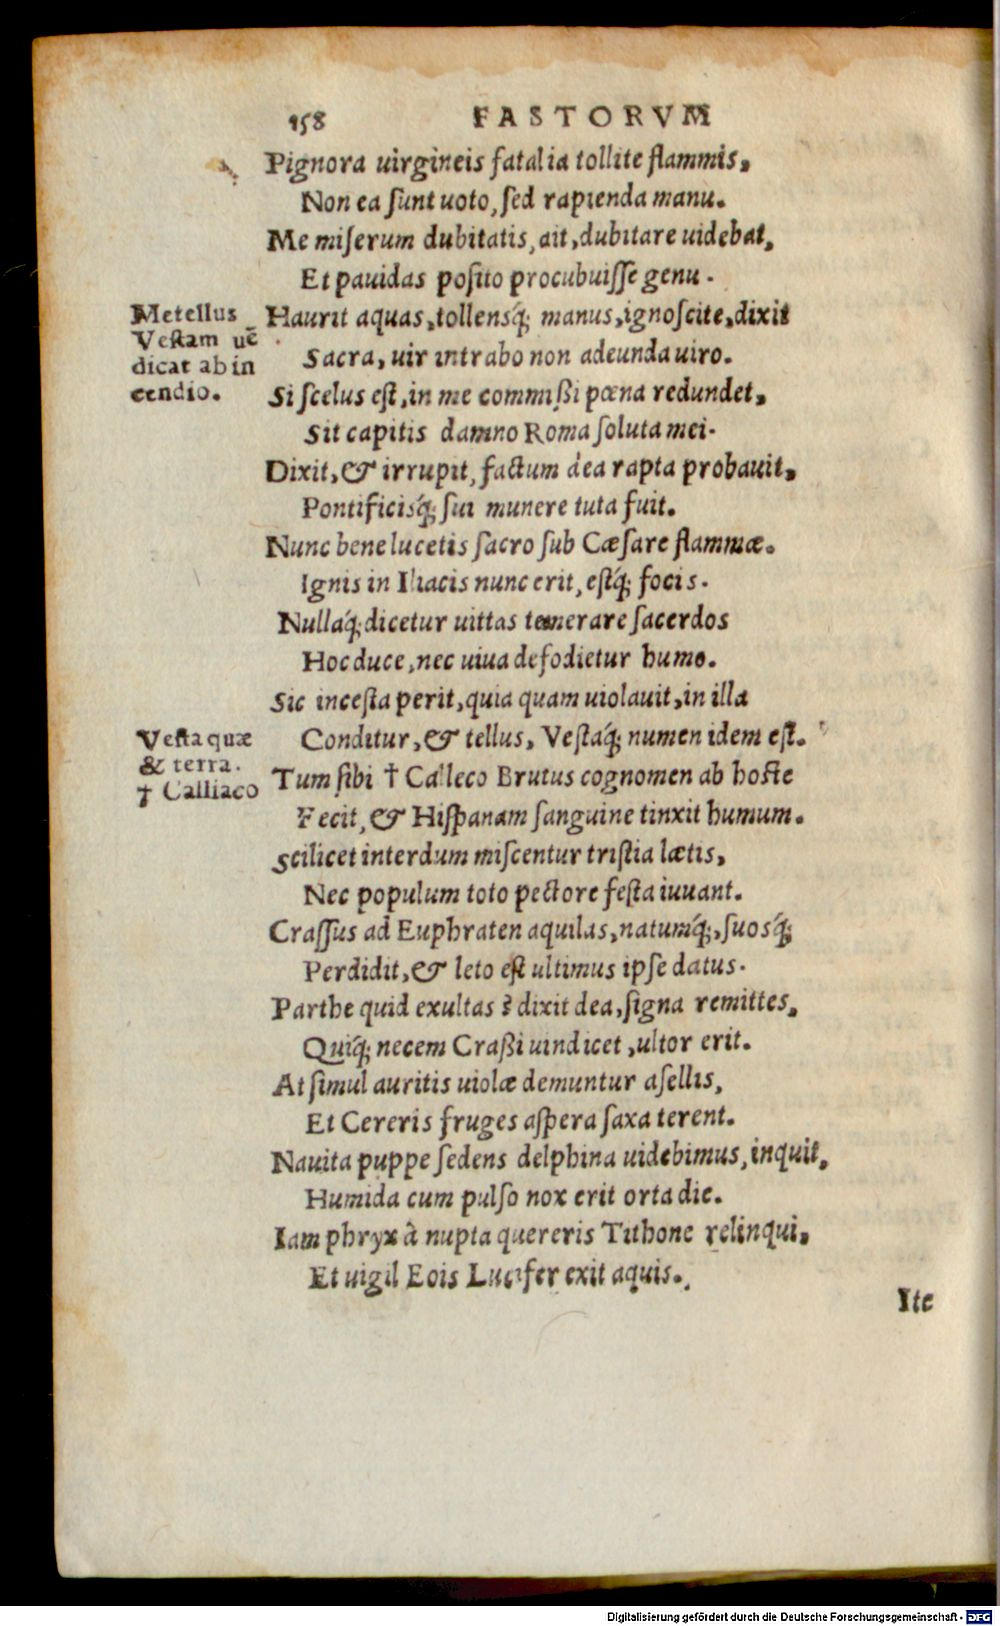 158 FASTORVM
Pignora uirgineis fatalia tollite flammis,
Non ea ſunt uoto, ſed rapienda manu.
Me miſerum dubitatis, ait, dubitare uidebat,
Et pauidas poſito procubuiſſe genu.
Metellus
Veſtam uẽ
dicat ab in
cendio.
Haurit aquas, tollensq́; manus, ignoſcite, dixit
Sacra, uir intrabo non adeunda uiro.
Si ſcelus eſt, in me commißi pœna redundet,
Sit capitis damno Roma ſoluta mei.
Dixit, & irrupit, factum dea rapta probauit,
Pontificisq́; ſui munere tuta fuit.
Nunc bene lucetis ſacro ſub Cæſare flammæ.
Ignis in Iliacis nunc erit, eſtq́; focis.
Nullaq́; dicetur uittas temerare ſacerdos
Hoc duce, nec uiua defodietur humo.
Sic inceſta perit, quia quam uiolauit, in illa
Veſta quæ
& terra.
† Calliaco
Conditur, & tellus, Veſtaq́; numen idem eſt.
Tum ſibi † Calleco Brutus cognomen ab hoſte
Fecit, & Hiſpanam ſanguine tinxit humum.
Scilicet interdum miſcentur triſtia lætis,
Nec populum toto pectore feſta iuuant.
Craſſus ad Euphraten aquilas, natumq́;, ſuosq́;
Perdidit, & leto eſt ultimus ipſe datus.
Parthe quid exultas? dixit dea, ſigna remittes,
Quiq́; necem Craßi uindicet, ultor erit.
At ſimul auritis uiolæ demuntur aſellis,
Et Cereris fruges aſpera ſaxa terent.
Nauita puppe ſedens delphina uidebimus, inquit,
Humida cum pulſo nox erit orta die.
Iam phryx à nupta quereris Tithone relinqui,
Et uigil Eois Lucifer exit aquis.
Ite
Digitalisierung gefördert durch die Deutsche Forschungsgemeinschaft - DFG